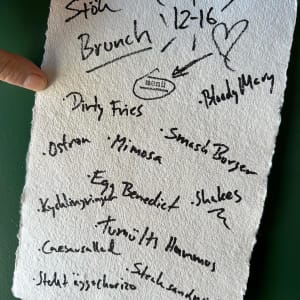 Stök
12-16
Brunch
menü
Bloody Mary
·Dirty Fries
·Ostron
·Mimosa
·Smash Burger
·Egg Benedict
·Shakes
·Kycklingvingar
·Tumülti Hummus
·Caesarsallad
·Stekt ägg
chorizo